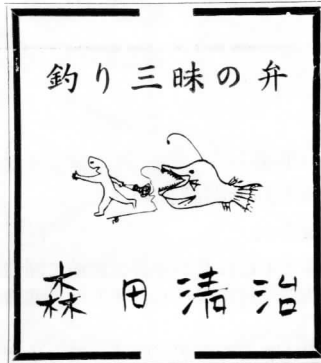 釣り三昧の弁
森田清治